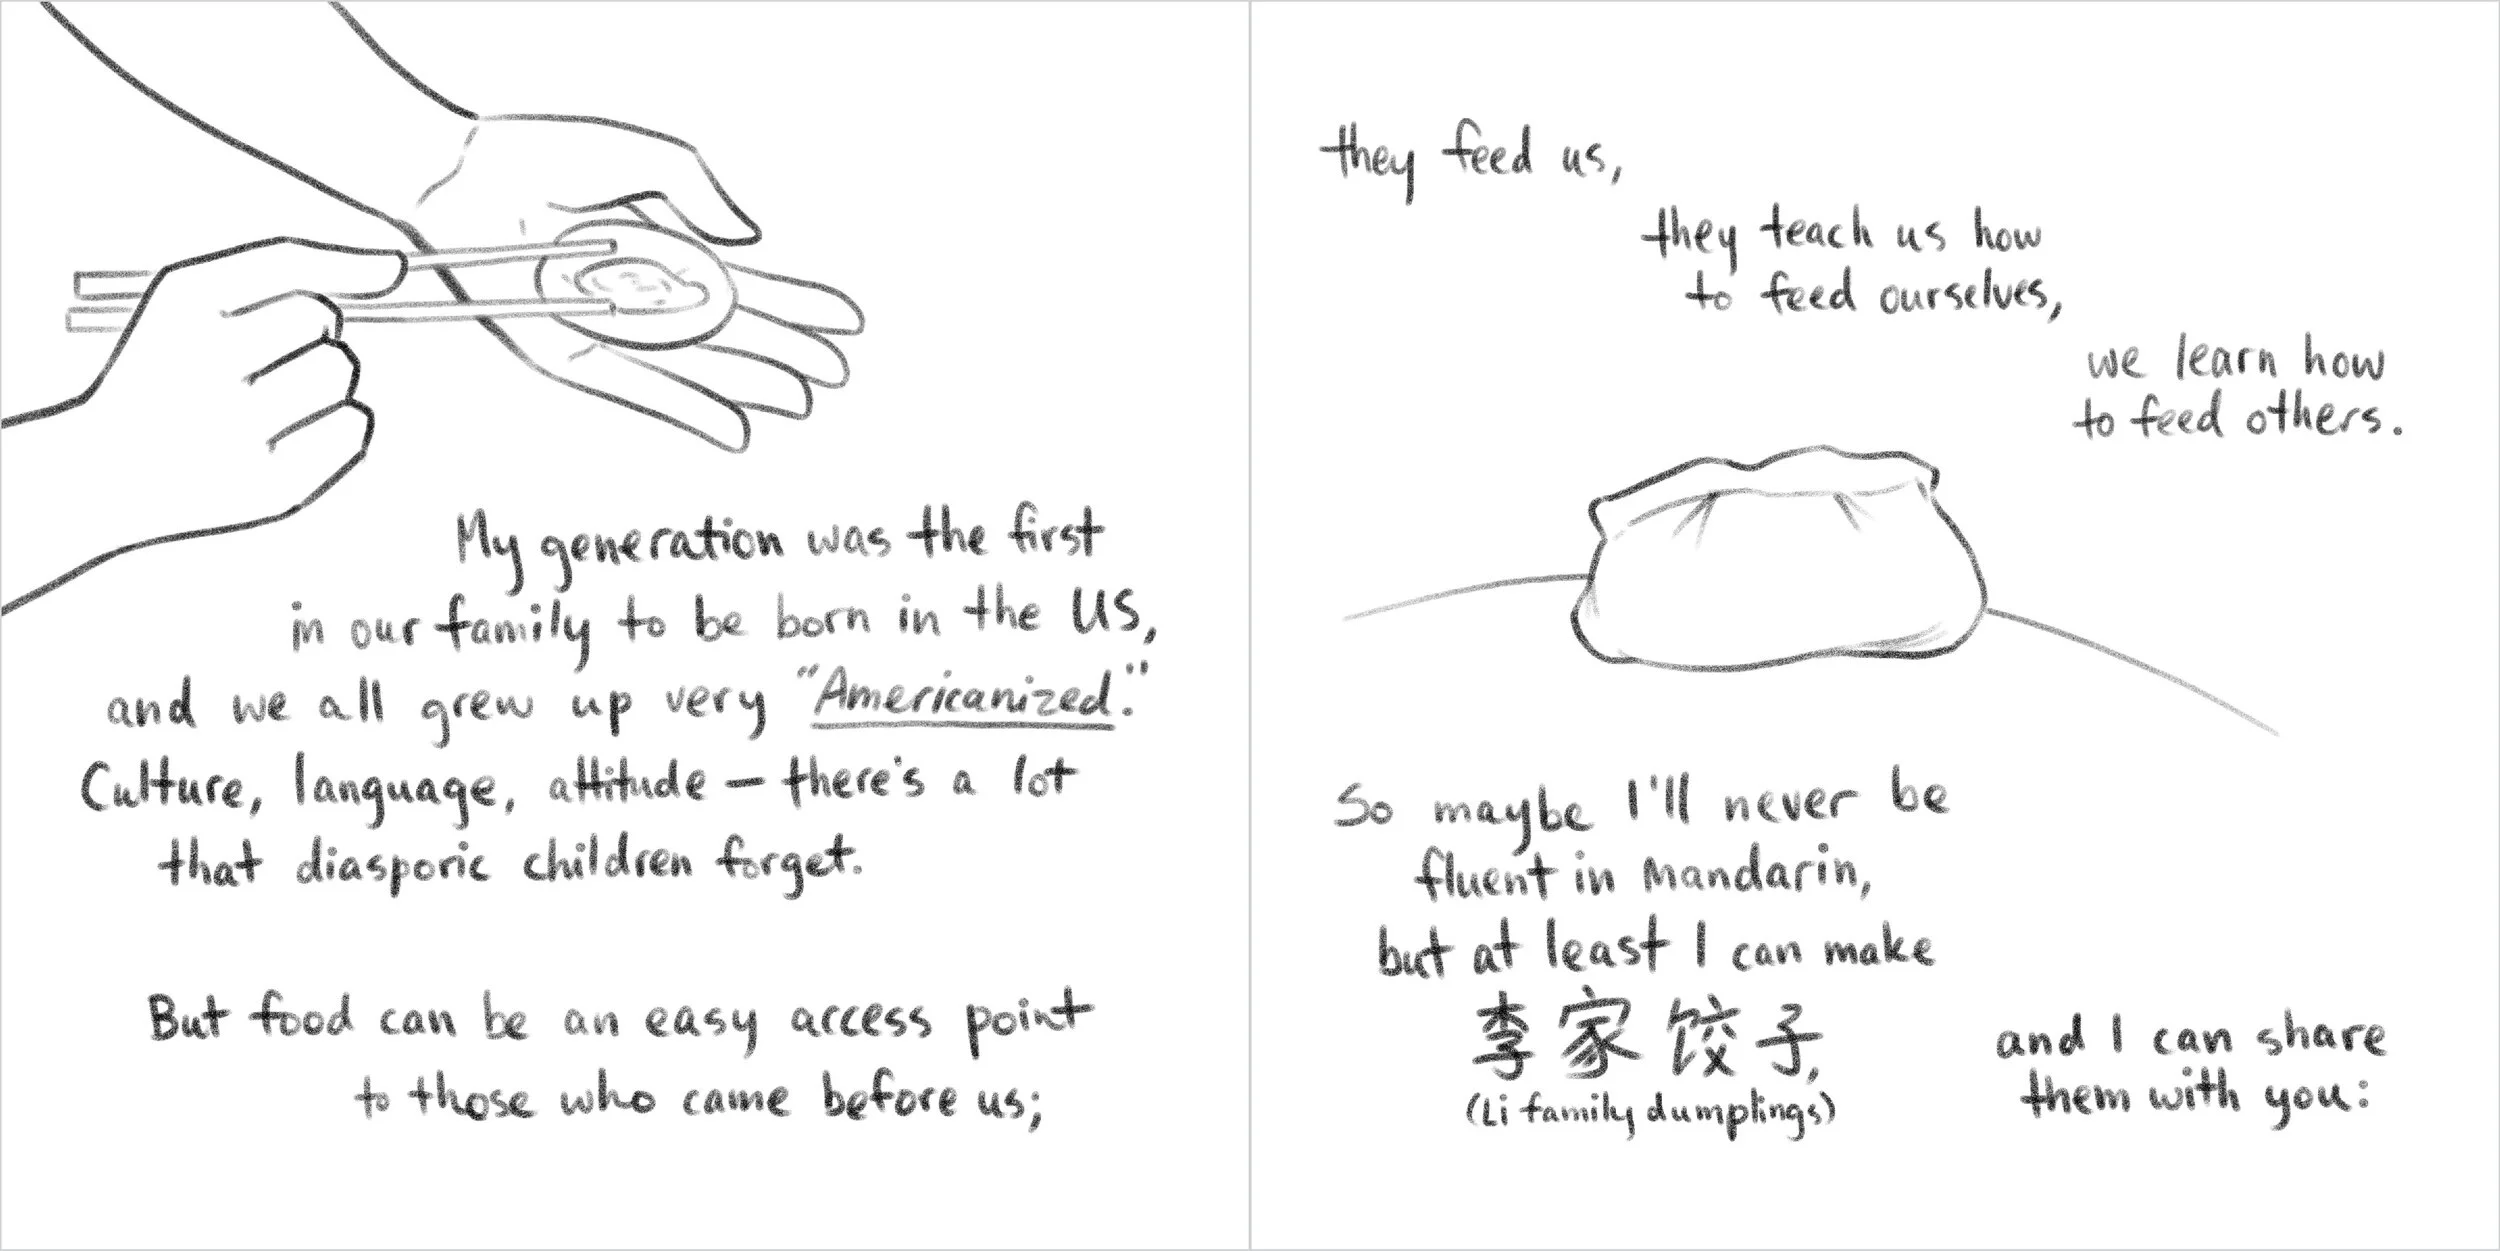 My generation was the first
in our family to be born in the US,
and we all grew up very "Americanized."
Culture, language, attitude — there's a lot
that diasporic children forget.
But food can be an easy access point
to those who came before us;
they feed us,
they teach us how
to feed ourselves,
we learn how
to feed others.
So maybe I'll never be
fluent in Mandarin,
but at least I can make
李家饺子,
(Li family dumplings)
and I can share
them with you: